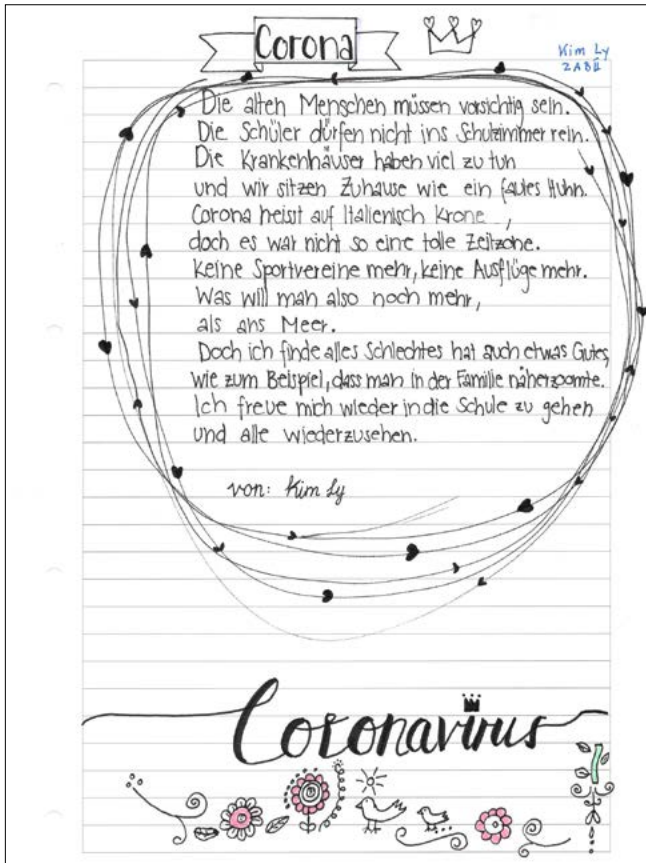 Corona
Kim Ly
2ABII
Die alten Menschen müssen vorsichtig sein.
Die Schüler dürfen nicht ins Schulzimmer rein.
Die Krankenhäuser haben viel zu tun
und wir sitzen Zuhause wie ein faules Huhn.
Corona heisst auf Italienisch Krone,
doch es war nicht so eine tolle Zeitzone.
Keine Sportvereine mehr, keine Ausflüge mehr.
Was will man also noch mehr,
als ans Meer.
Doch ich finde alles Schlechtes hat auch etwas Gutes,
wie zum Beispiel, dass man in der Familie näherzoomte.
Ich freue mich wieder in die Schule zu gehen
und alle wiederzusehen.
von: Kim Ly
Coronavirus